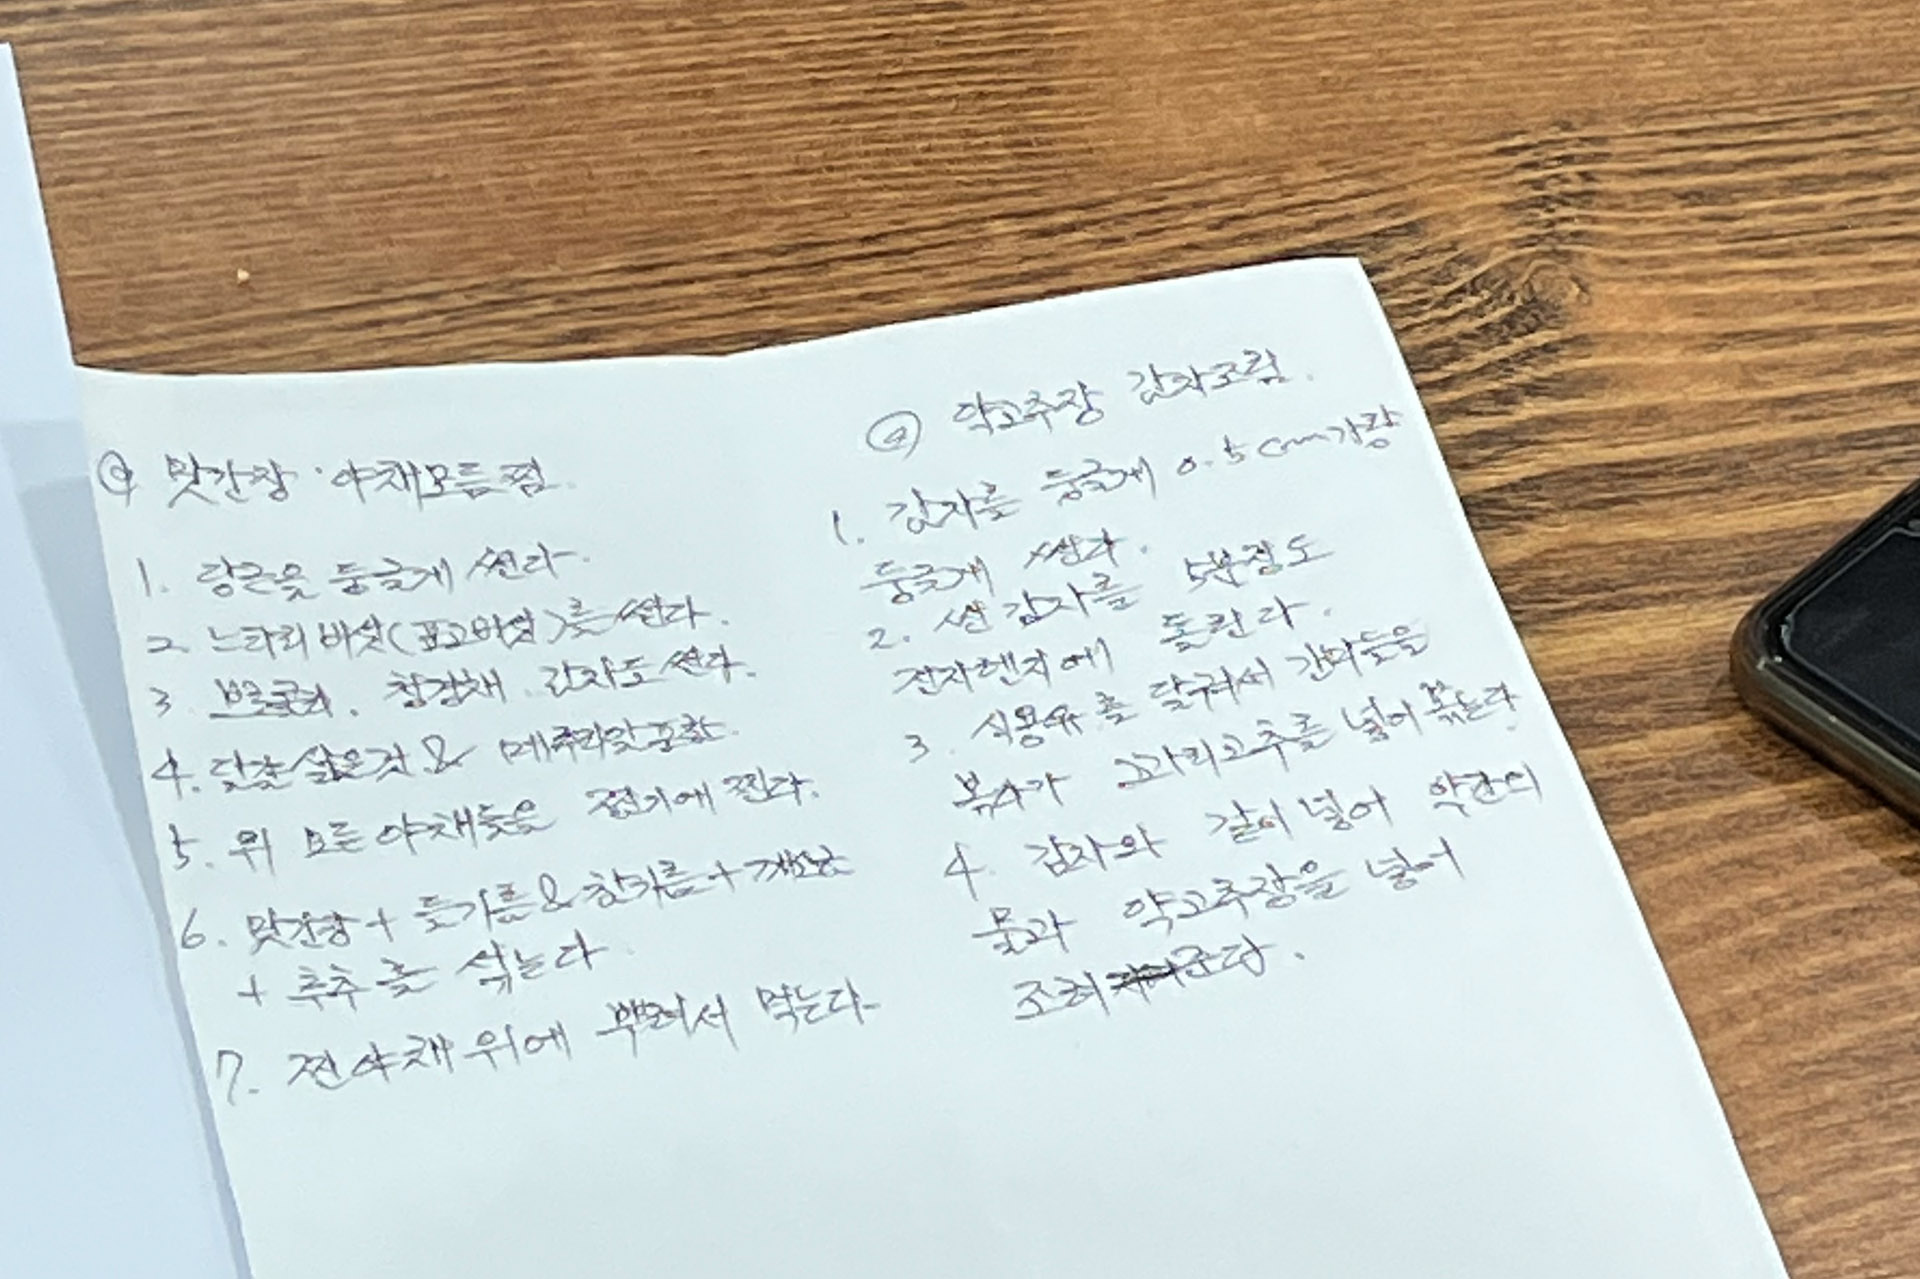 @ 맛간장 · 야채모듬찜.
1. 당근을 둥글게 썬다.
2. 느타리버섯(표고버섯)를 썬다.
3 브로콜리. 청경채. 감자도 썬다.
4. 닭알 삶은것 & 메추리알 포함.
5. 위 모든 야채들을 찜기에 찐다.
6. 맛간장 + 들기름 & 참기름 + 깨소금
+ 후추를 섞는다.
7. 찐야채 위에 뿌려서 먹는다.
@ 약고추장 감자조림.
1. 감자를 둥글게 0.5cm가량
둥글게 썬다.
2. 썬 감자를 5분정도
전자렌지에 돌린다.
3. 식용유를 달궈서 감자들을
볶다가 꽈리고추를 넣어 볶는다
4. 감자와 같이 넣어 약간의
물과 약고추장을 넣어
조려준다.